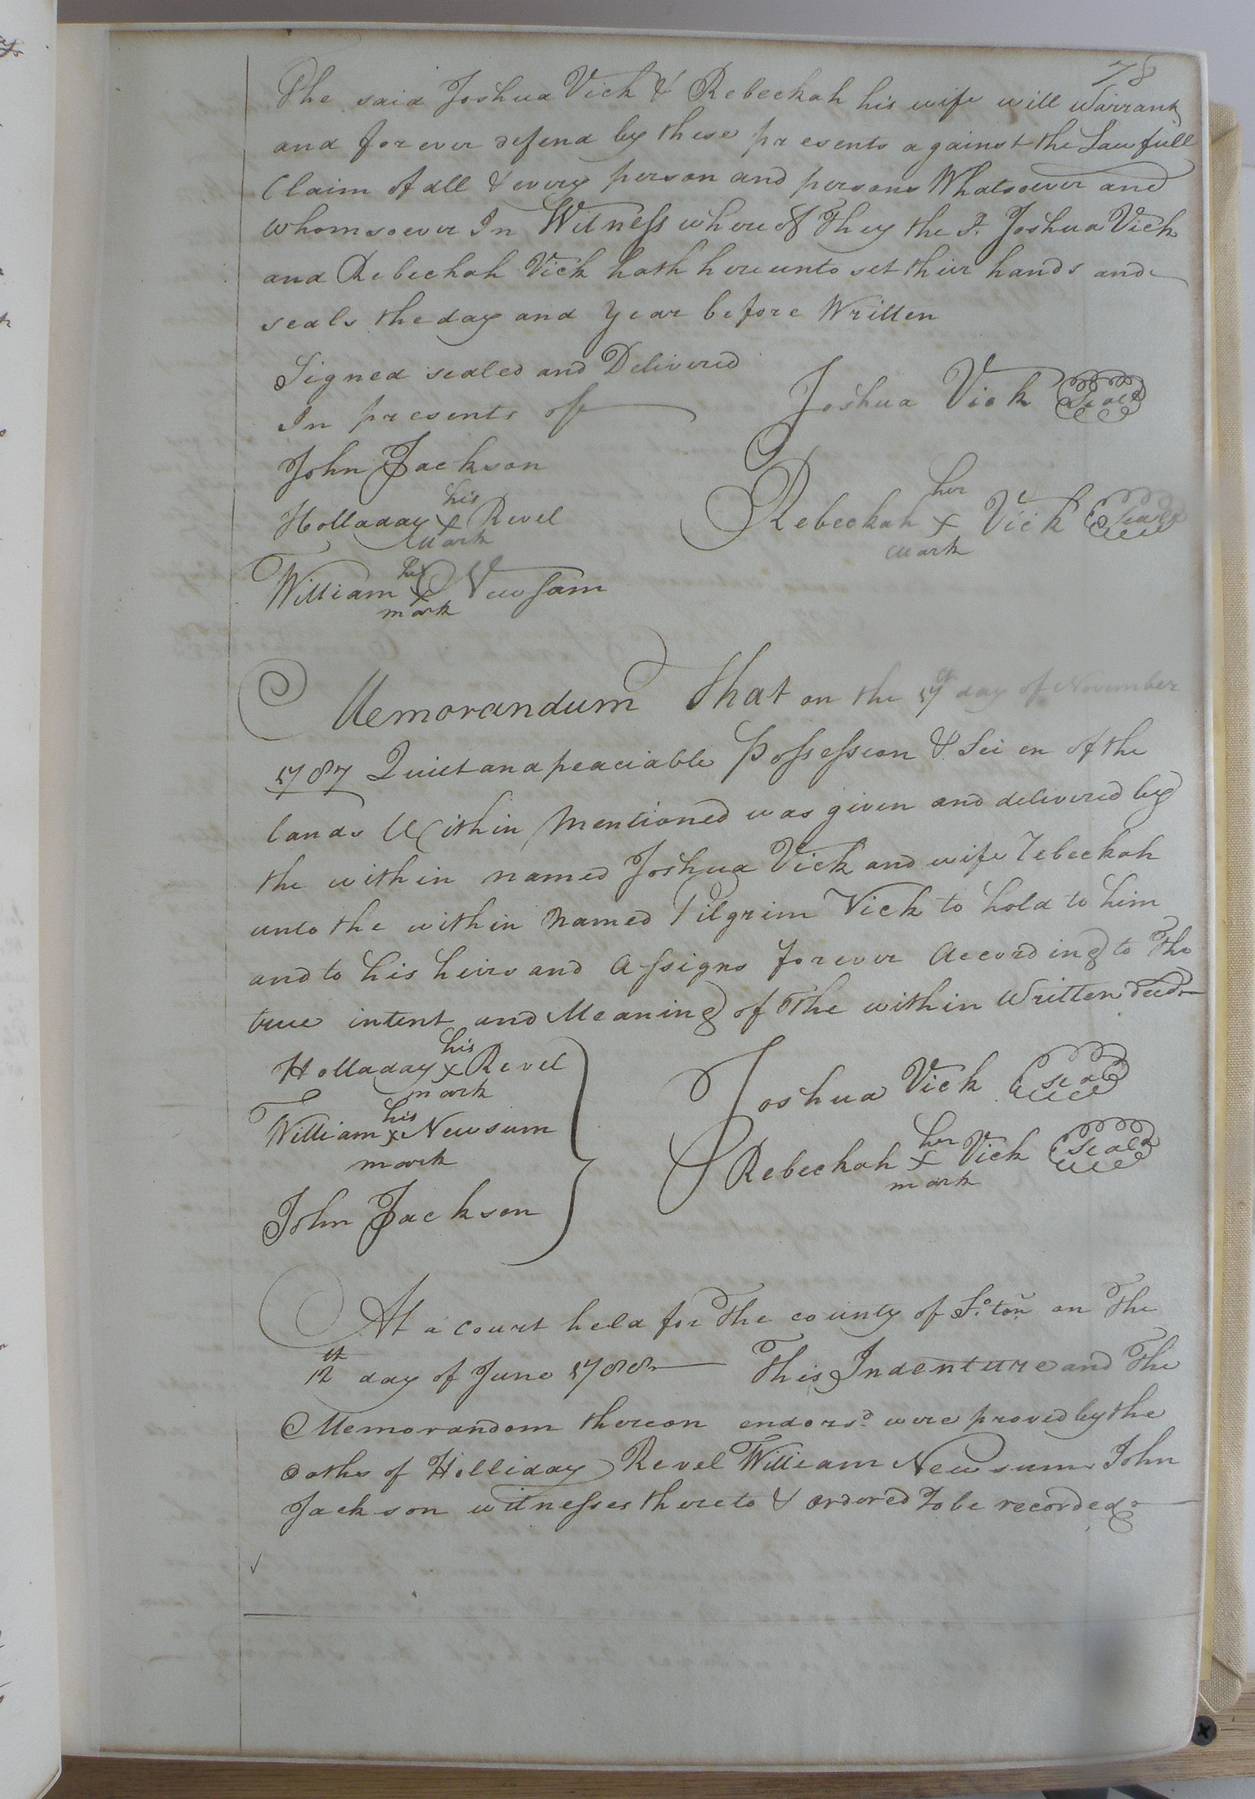 78
The said Joshua Vick & Rebeckah his wife will warrant
and for ever defend by these presents against the Lawfull
Claim of all & every person and persons Whatsoever and
whomsoever In Witness whereof They the sd. Joshua Vick
and Rebeckah Vick hath hereunto set their hands and
seals the day and year before Written
Signed sealed and Delivered
In presents off
Joshua Vick Seal
John Jackson
Holladay his x mark Revel
Rebeckah her x mark Vick Seal
William his x mark Newsam
Memorandum that on the 17th day of November
1787 Quiet and peaciable Possession & Sei en of the
lands Within Mentioned was given and delivered by
the within named Joshua Vick and wife Rebeckah
unto the within Named Pilgrim Vick to hold to him
and to his heirs and Assigns forever According to The
true intent and Meaning of The within Written deed
Holladay his x mark Revel
Joshua Vick seal
William his x mark Newsum
Rebeckah her x mark Vick Seal
John Jackson
At a court held for The county of So.ton on The
12th day of June 1788 This Indenture and The
Memorandom thereon endorsd. were proved by the
oaths of Holliday Revel William Newsum John
Jackson witnesses thereto & ordered to be recorded